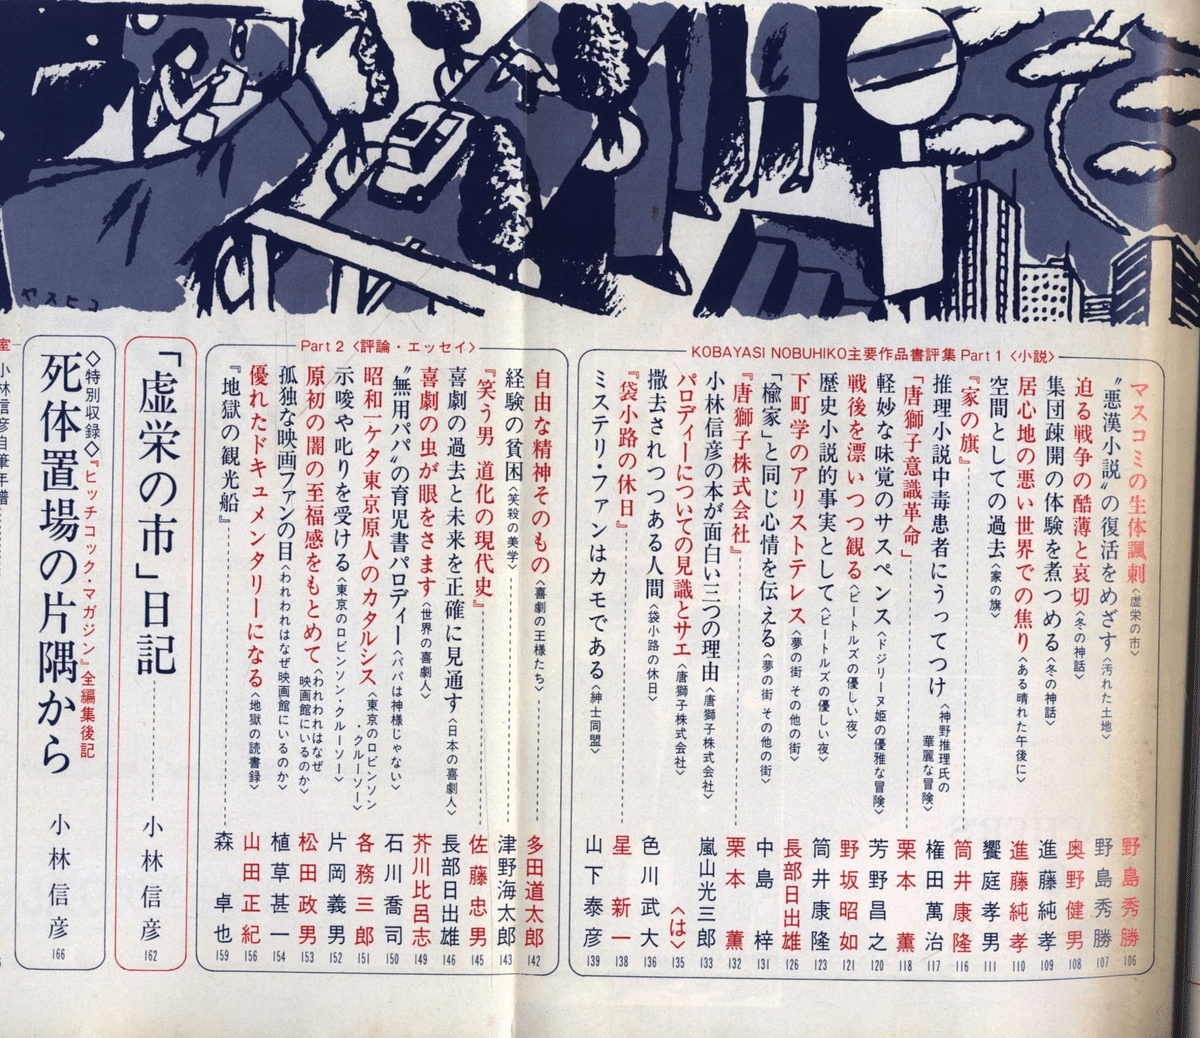 ヤスヒコ
KOBAYASI NOBUHIKO主要作品書評集 Part 1〈小説〉
マスコミの生体諷刺〈虚栄の市〉 野島秀勝 106
〝悪漢小説〟の復活をめざす〈汚れた土地〉 野島秀勝 107
迫る戦争の酷薄と哀切〈冬の神話〉 奥野健男 108
集団疎開の体験を煮つめる〈冬の神話〉 進藤純孝 109
居心地の悪い世界での焦り〈ある晴れた午後に〉 進藤純孝 110
空間としての過去〈家の旗〉 饗庭孝男 111
『家の旗』 筒井康隆 116
推理小説中毒患者にうってつけ〈神野推理氏の華麗な冒険〉 権田萬治 117
「唐獅子意識革命」 栗本薫 118
軽妙な味覚のサスペンス〈ドジリーヌ姫の優雅な冒険〉 芳野昌之 120
戦後を漂いつつ観る〈ビートルズの優しい夜〉 野坂昭如 121
歴史小説的事実として〈ビートルズの優しい夜〉 筒井康隆 123
下町学のアリストテレス〈夢の街 その他の街〉 長部日出雄 126
「楡家」と同じ心情を伝える〈夢の街 その他の街〉 中島梓 131
『唐獅子株式会社』 栗本薫 132
小林信彦の本が面白い三つの理由〈唐獅子株式会社〉 嵐山光三郎 133
パロディーについての見識とサエ〈唐獅子株式会社〉 〈は〉 135
撒去されつつある人間〈袋小路の休日〉 色川武大 136
『袋小路の休日』 星新一 138
ミステリ・ファンはカモである〈紳士同盟〉 山下泰彦 139
Part 2〈評論・エッセイ〉
自由な精神そのもの〈喜劇の王様たち〉 多田道太郎 142
経験の貧困〈笑殺の美学〉 津野海太郎 143
『笑う男 道化の現代史』 佐藤忠男 145
喜劇の過去と未来を正確に見通す〈日本の喜劇人〉 長部日出雄 146
喜劇の虫が眼をさます〈世界の喜劇人〉 芥川比呂志 149
〝無用パパ〟の育児書パロディー〈パパは神様じゃない〉 石川喬司 150
昭和一ケタ東京原人のカタルシス〈東京のロビンソン・クルーソー〉 各務三郎 151
示唆や叱りを受ける〈東京のロビンソン・クルーソー〉 片岡義男 152
原初の闇の至福感をもとめて〈われわれはなぜ映画館にいるのか〉 松田政男 153
孤独な映画ファンの日〈われわれはなぜ映画館にいるのか〉 植草甚一 154
優れたドキュメンタリーになる〈地獄の読書録〉 山田正紀 156
『地獄の観光船』 森卓也 159
「虚栄の市」日記 小林信彦 162
◇特別収録◇『ヒッチコック・マガジン』全編集後記
死体置場の片隅から 小林信彦 166
小林信彦自筆年譜